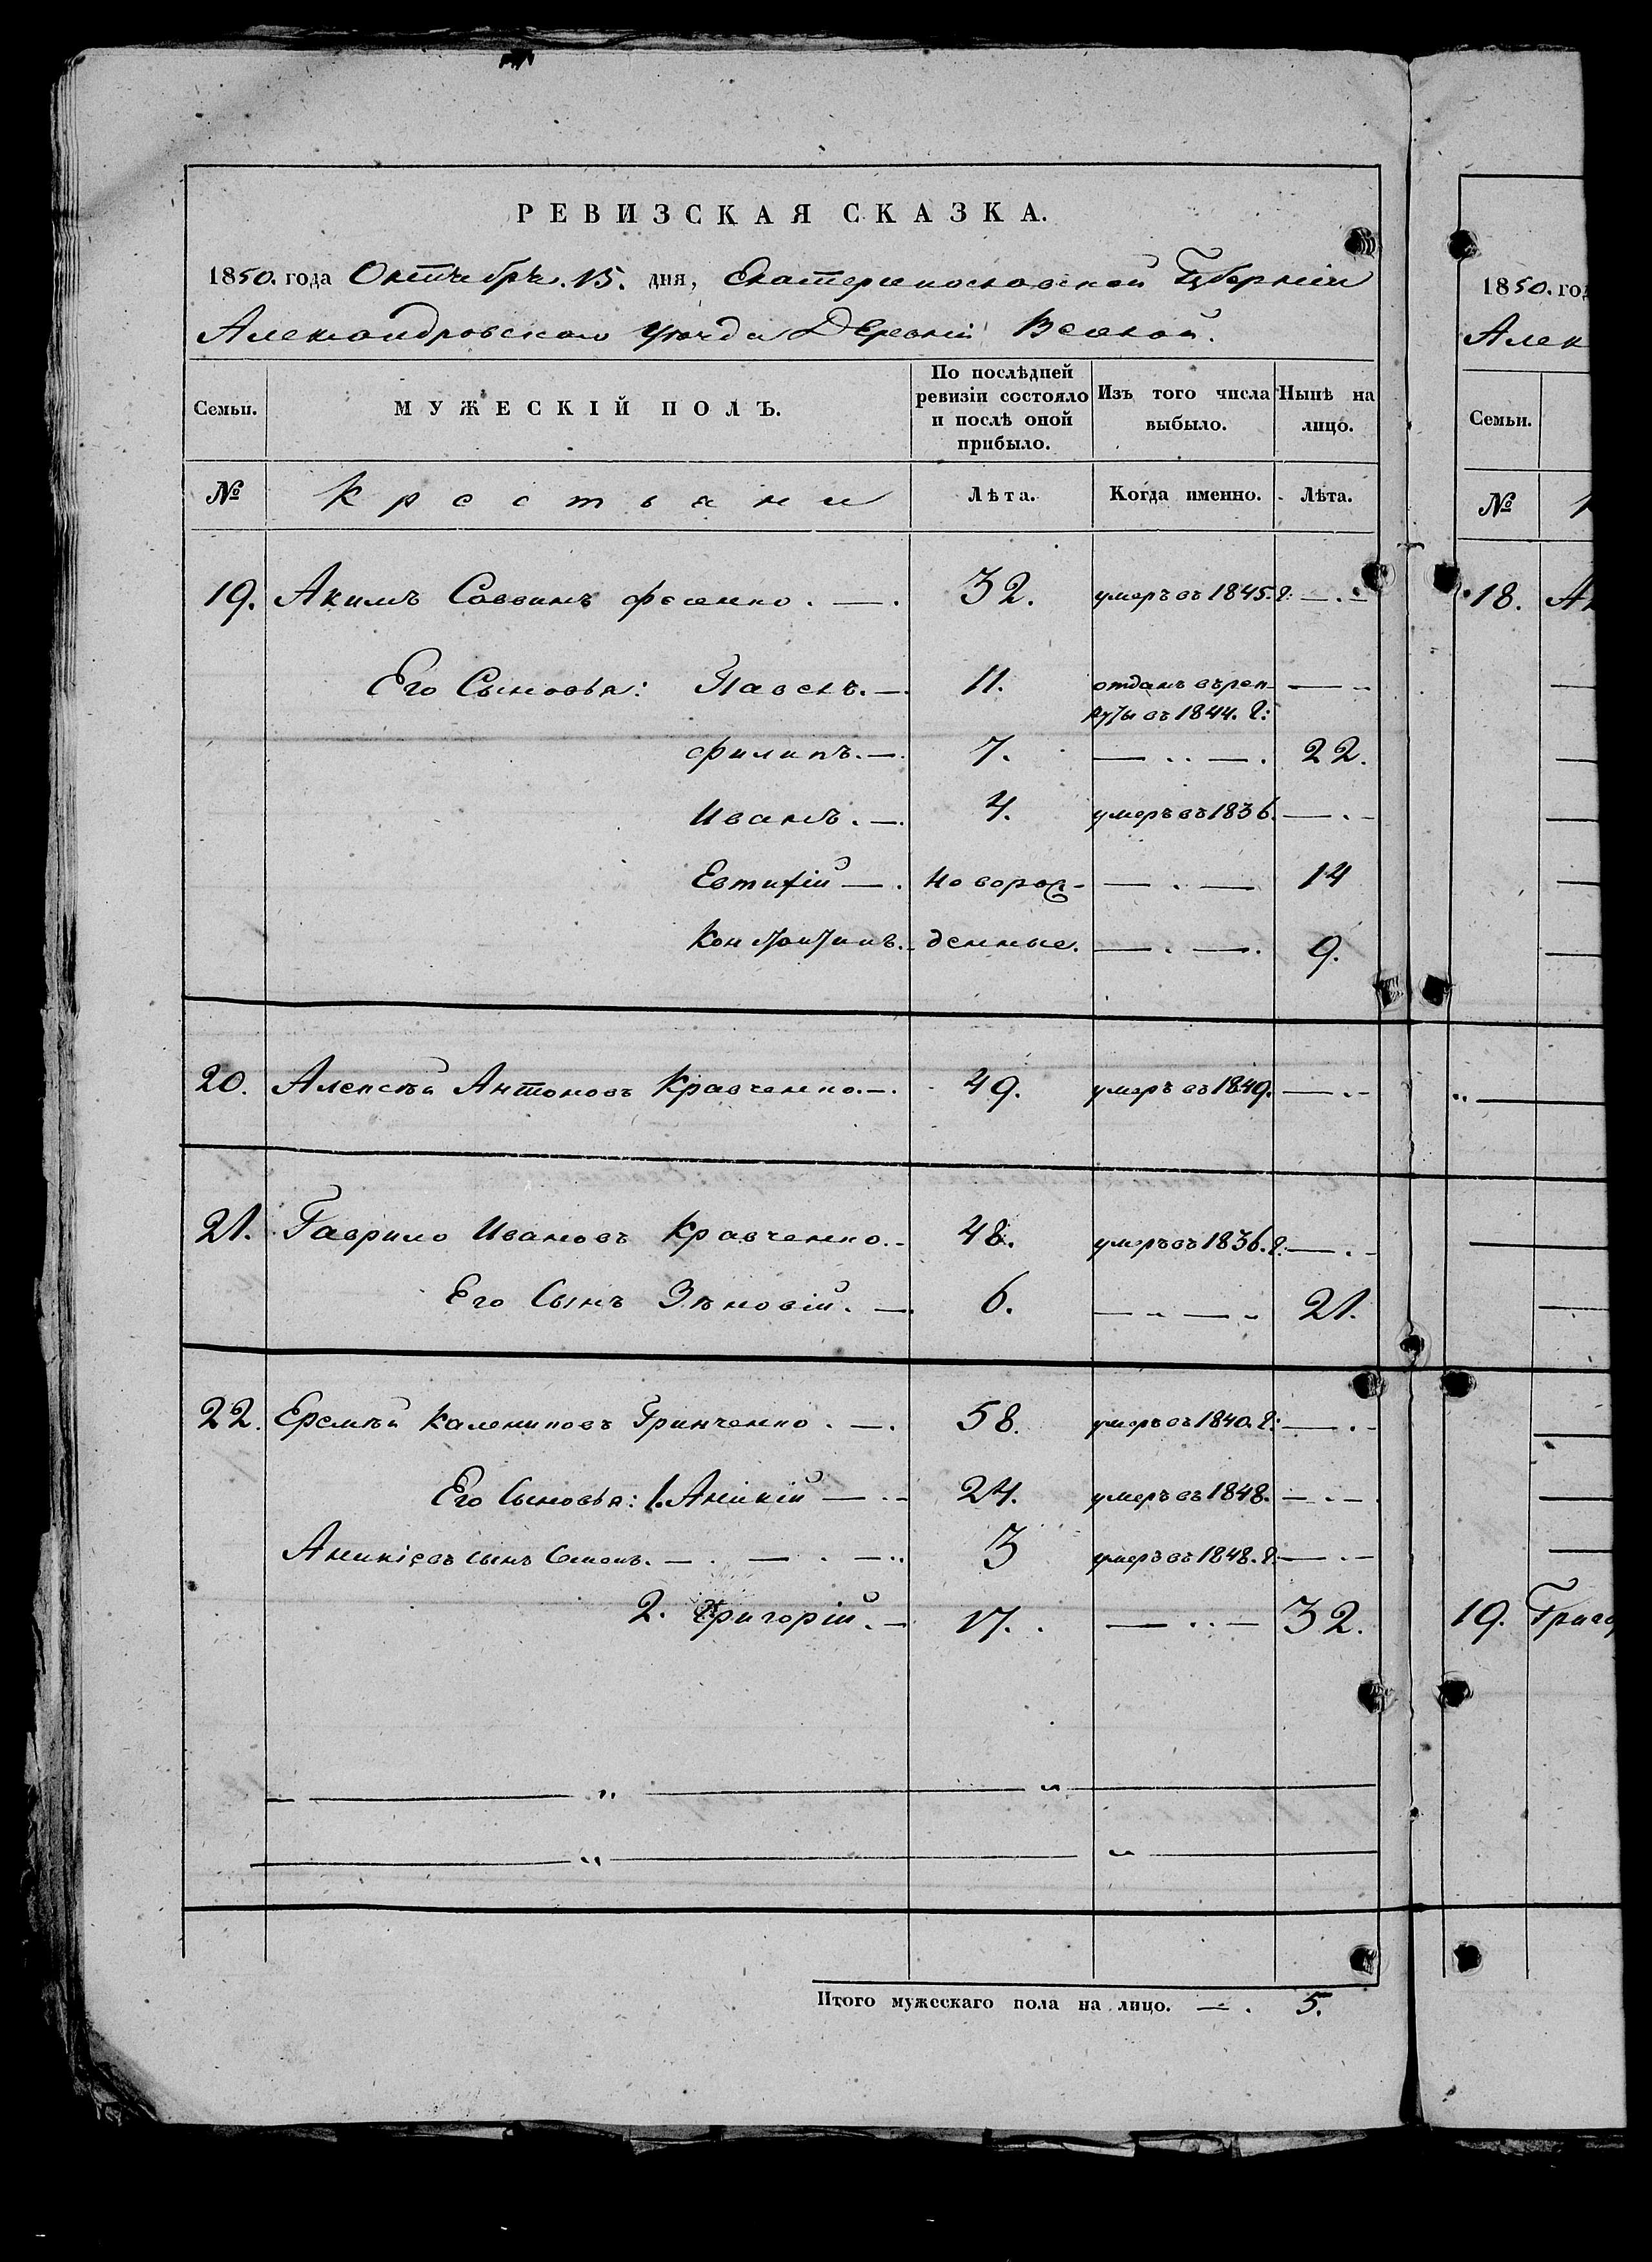 РЕВИЗСКАЯ СКАЗКА.
1850. года Октября. 15. дня, Екатеринославской Губерніи
Александровскаго Уѣзда Деревни
Семьи.
МУЖЕСКІЙ ПОЛЪ.
По послѣдней ревизіи состояло и послѣ оной прибыло.
Изъ того числа выбыло.
Нынѣ на лицо.
№ Крестьяни Лѣта. Когда именно. Лѣта.
19. Акимъ Саввинъ Фесенко. — . 32. умеръ въ 1845. г: — . –
Его Сыновья: Павелъ. — 11. отданъ въ рек- — . –
руты въ 1844. г:
Филипъ. — 7. — . . — . 22.
Иванъ. — . 4. умеръ въ 1836. — . –
Евтихій — . Новорож- — . — 14
Константинъ. – денные. — . — . 9.
20. Алексѣй Антоновъ Кравченко. — . 49. умеръ въ 1849. — . –
21. Гаврило Ивановъ Кравченко. – 48. умеръ въ 1836. г. — . –
Его Сынъ Зѣновій. — 6. — . . — . 21.
22. Еремѣй Калениковъ Гринченко. — . 58. умеръ въ 1840. г: — . –
Его Сыновья: 1. Аникій — . – 24. умеръ въ 1848. – . –
Аникіевъ сынъ Семенъ. — . — . — . . 3 умеръ въ 1848. г. — . –
2. Григорій. – 17. . — . . — 32.
Итого мужескаго пола на лицо. — . 5.
1850. год
Алек
Семьи.
№
18.
19. Григо